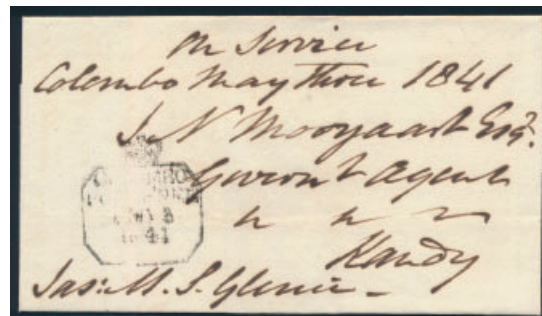 On Service
Colombo May Three 1841
J. N Mooyaart Esqr.
Governt Agent
" " "
Kandy
COLOMBO
POST
1841
Jas: M. S. Glenie